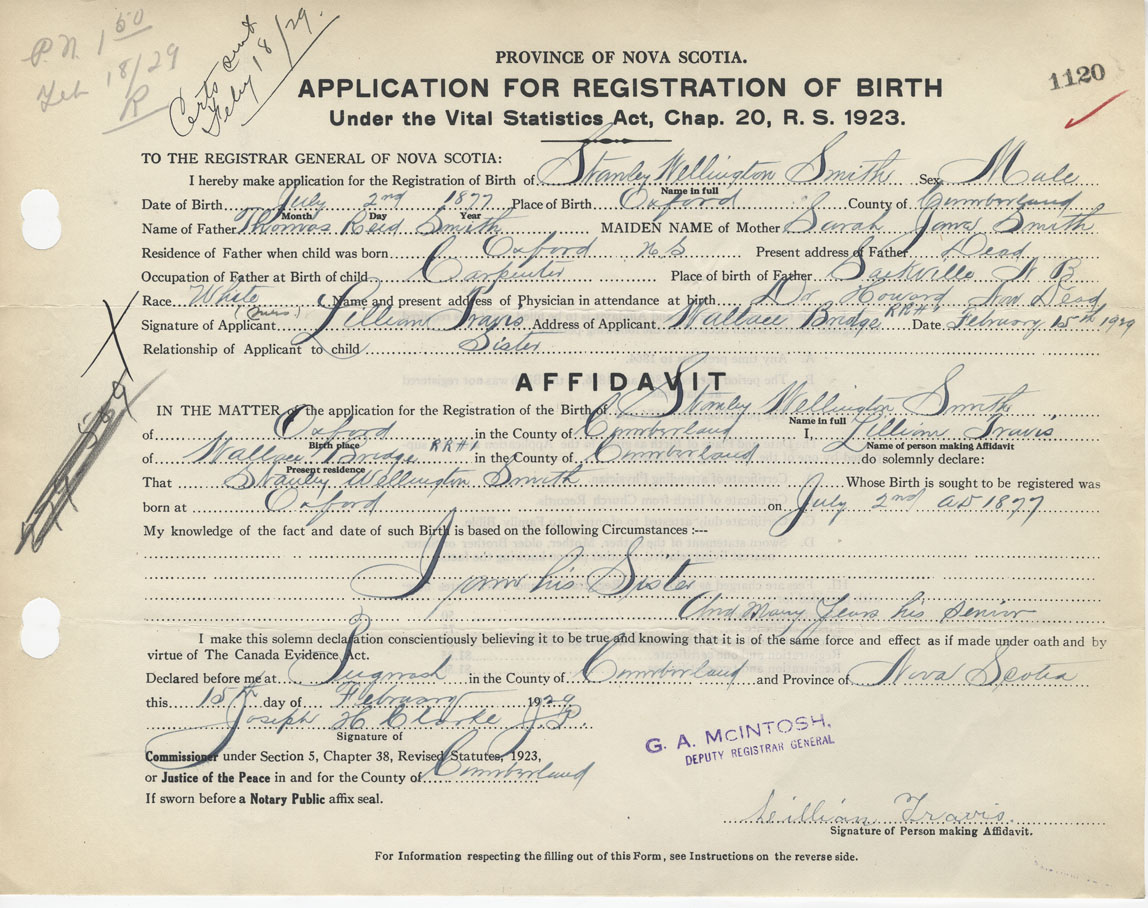 P.N. 1 50
Feb 18/29
R
Certs sent
Feby 18/29.
1120
PROVINCE OF NOVA SCOTIA.
APPLICATION FOR REGISTRATION OF BIRTH
Under the Vital Statistics Act, Chap. 20, R. S. 1923.
TO THE REGISTRAR GENERAL OF NOVA SCOTIA:
I hereby make application for the Registration of Birth of Stanley Wellington Smith Sex Male
Name in full
Date of Birth July 2nd 1877 Place of Birth Oxford County of Cumberland
Month Day Year
Name of Father Thomas Reid Smith MAIDEN NAME of Mother Sarah Jane Smith
Residence of Father when child was born Oxford N S Present address of Father Dead
Occupation of Father at Birth of child Carpenter Place of birth of Father Sackville N B
Race White Name and present address of Physician in attendance at birth Dr Howard Now Dead
Signature of Applicant (Mrs) Lillian Travis Address of Applicant Wallace Bridge RR#1 Date February 15th 1929
Relationship of Applicant to child Sister
AFFIDAVIT
IN THE MATTER of the application for the Registration of the Birth of Stanley Wellington Smith
Name in full
of Oxford in the County of Cumberland I, Lillian Travis
Birth place Name of person making Affidavit
of Wallace Bridge RR#1 in the County of Cumberland do solemnly declare:
Present residence
That Stanley Wellington Smith Whose Birth is sought to be registered was
born at Oxford on July 2nd AD 1877
My knowledge of the fact and date of such Birth is based on the following Circumstances :---
I am his Sister
And Many Years his Senior
I make this solemn declaration conscientiously believing it to be true and knowing that it is of the same force and effect as if made under oath and by
virtue of The Canada Evidence Act.
Declared before me at Pugwash in the County of Cumberland and Province of Nova Scotia
this 15th day of February 1929
Joseph H Clarke J.P.
Signature of
Commissioner under Section 5, Chapter 38, Revised Statutes, 1923,
or Justice of the Peace in and for the County of Cumberland
If sworn before a Notary Public affix seal.
G. A. McINTOSH,
DEPUTY REGISTRAR GENERAL
Lillian Travis
Signature of Person making Affidavit.
For Information respecting the filling out of this Form, see Instructions on the reverse side.